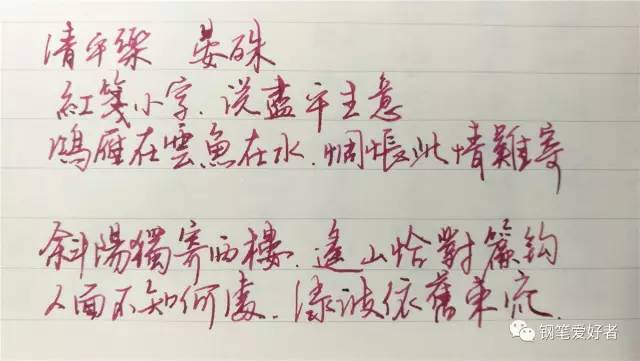 清平樂 晏殊
紅箋小字.说盡平生意
鴻雁在雲魚在水.惆悵此情難寄
斜陽獨寄西樓.遙山恰對簾鈎
人面不知何處.綠波依舊東流.
钢笔爱好者